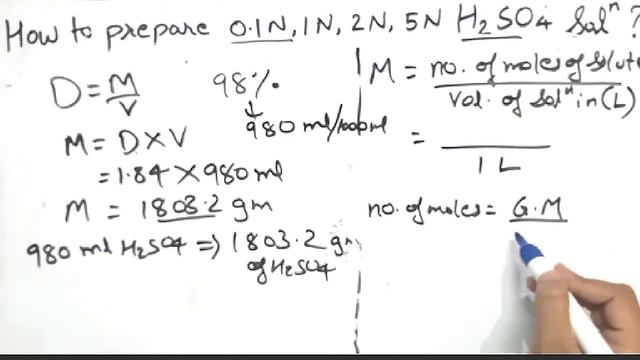 How to prepare 0.1N, 1N, 2N, 5N H2SO4 Solⁿ?
D = M/V
98%
↓
980 ml/1000ml
M = D×V
= 1.84 × 980 ml
M = 1803.2 gm
980 ml H2SO4 ⇒ 1803.2 gm
of H2SO4
M = no. of moles of solute
Vol. of Solⁿ in (L)
=
1 L
no. of moles = G.M